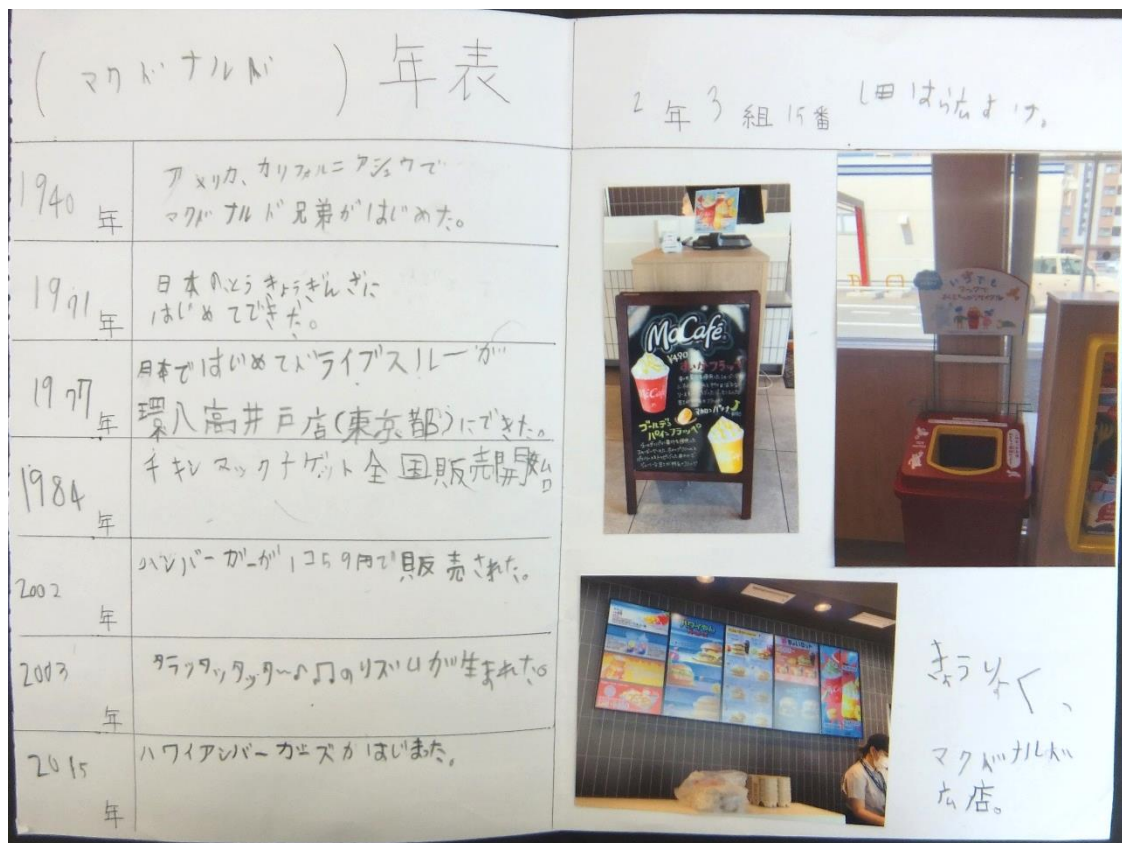 (マクドナルド) 年表
1940年
アメリカ、カリフォルニアシュウで
マクドナルド兄弟がはじめた。
1971年
日本のとうきょうぎんざに
はじめてできた。
1977年
日本ではじめてドライブスルーが
環八高井戸店(東京都)にできた。
1984年
チキンマックナゲット全国販売開始
2002年
ハンバーガーが1コ59円で販売された。
2003年
タラッタッタッタ〜♪♫のリズムが生まれた。
2015年
ハワイアンバーガーズがはじまった。
2年3組15番
McCafé
¥490
ゴールデン
パインフラッペ
いつでも
きょうりょく、
マクドナルド
広店。